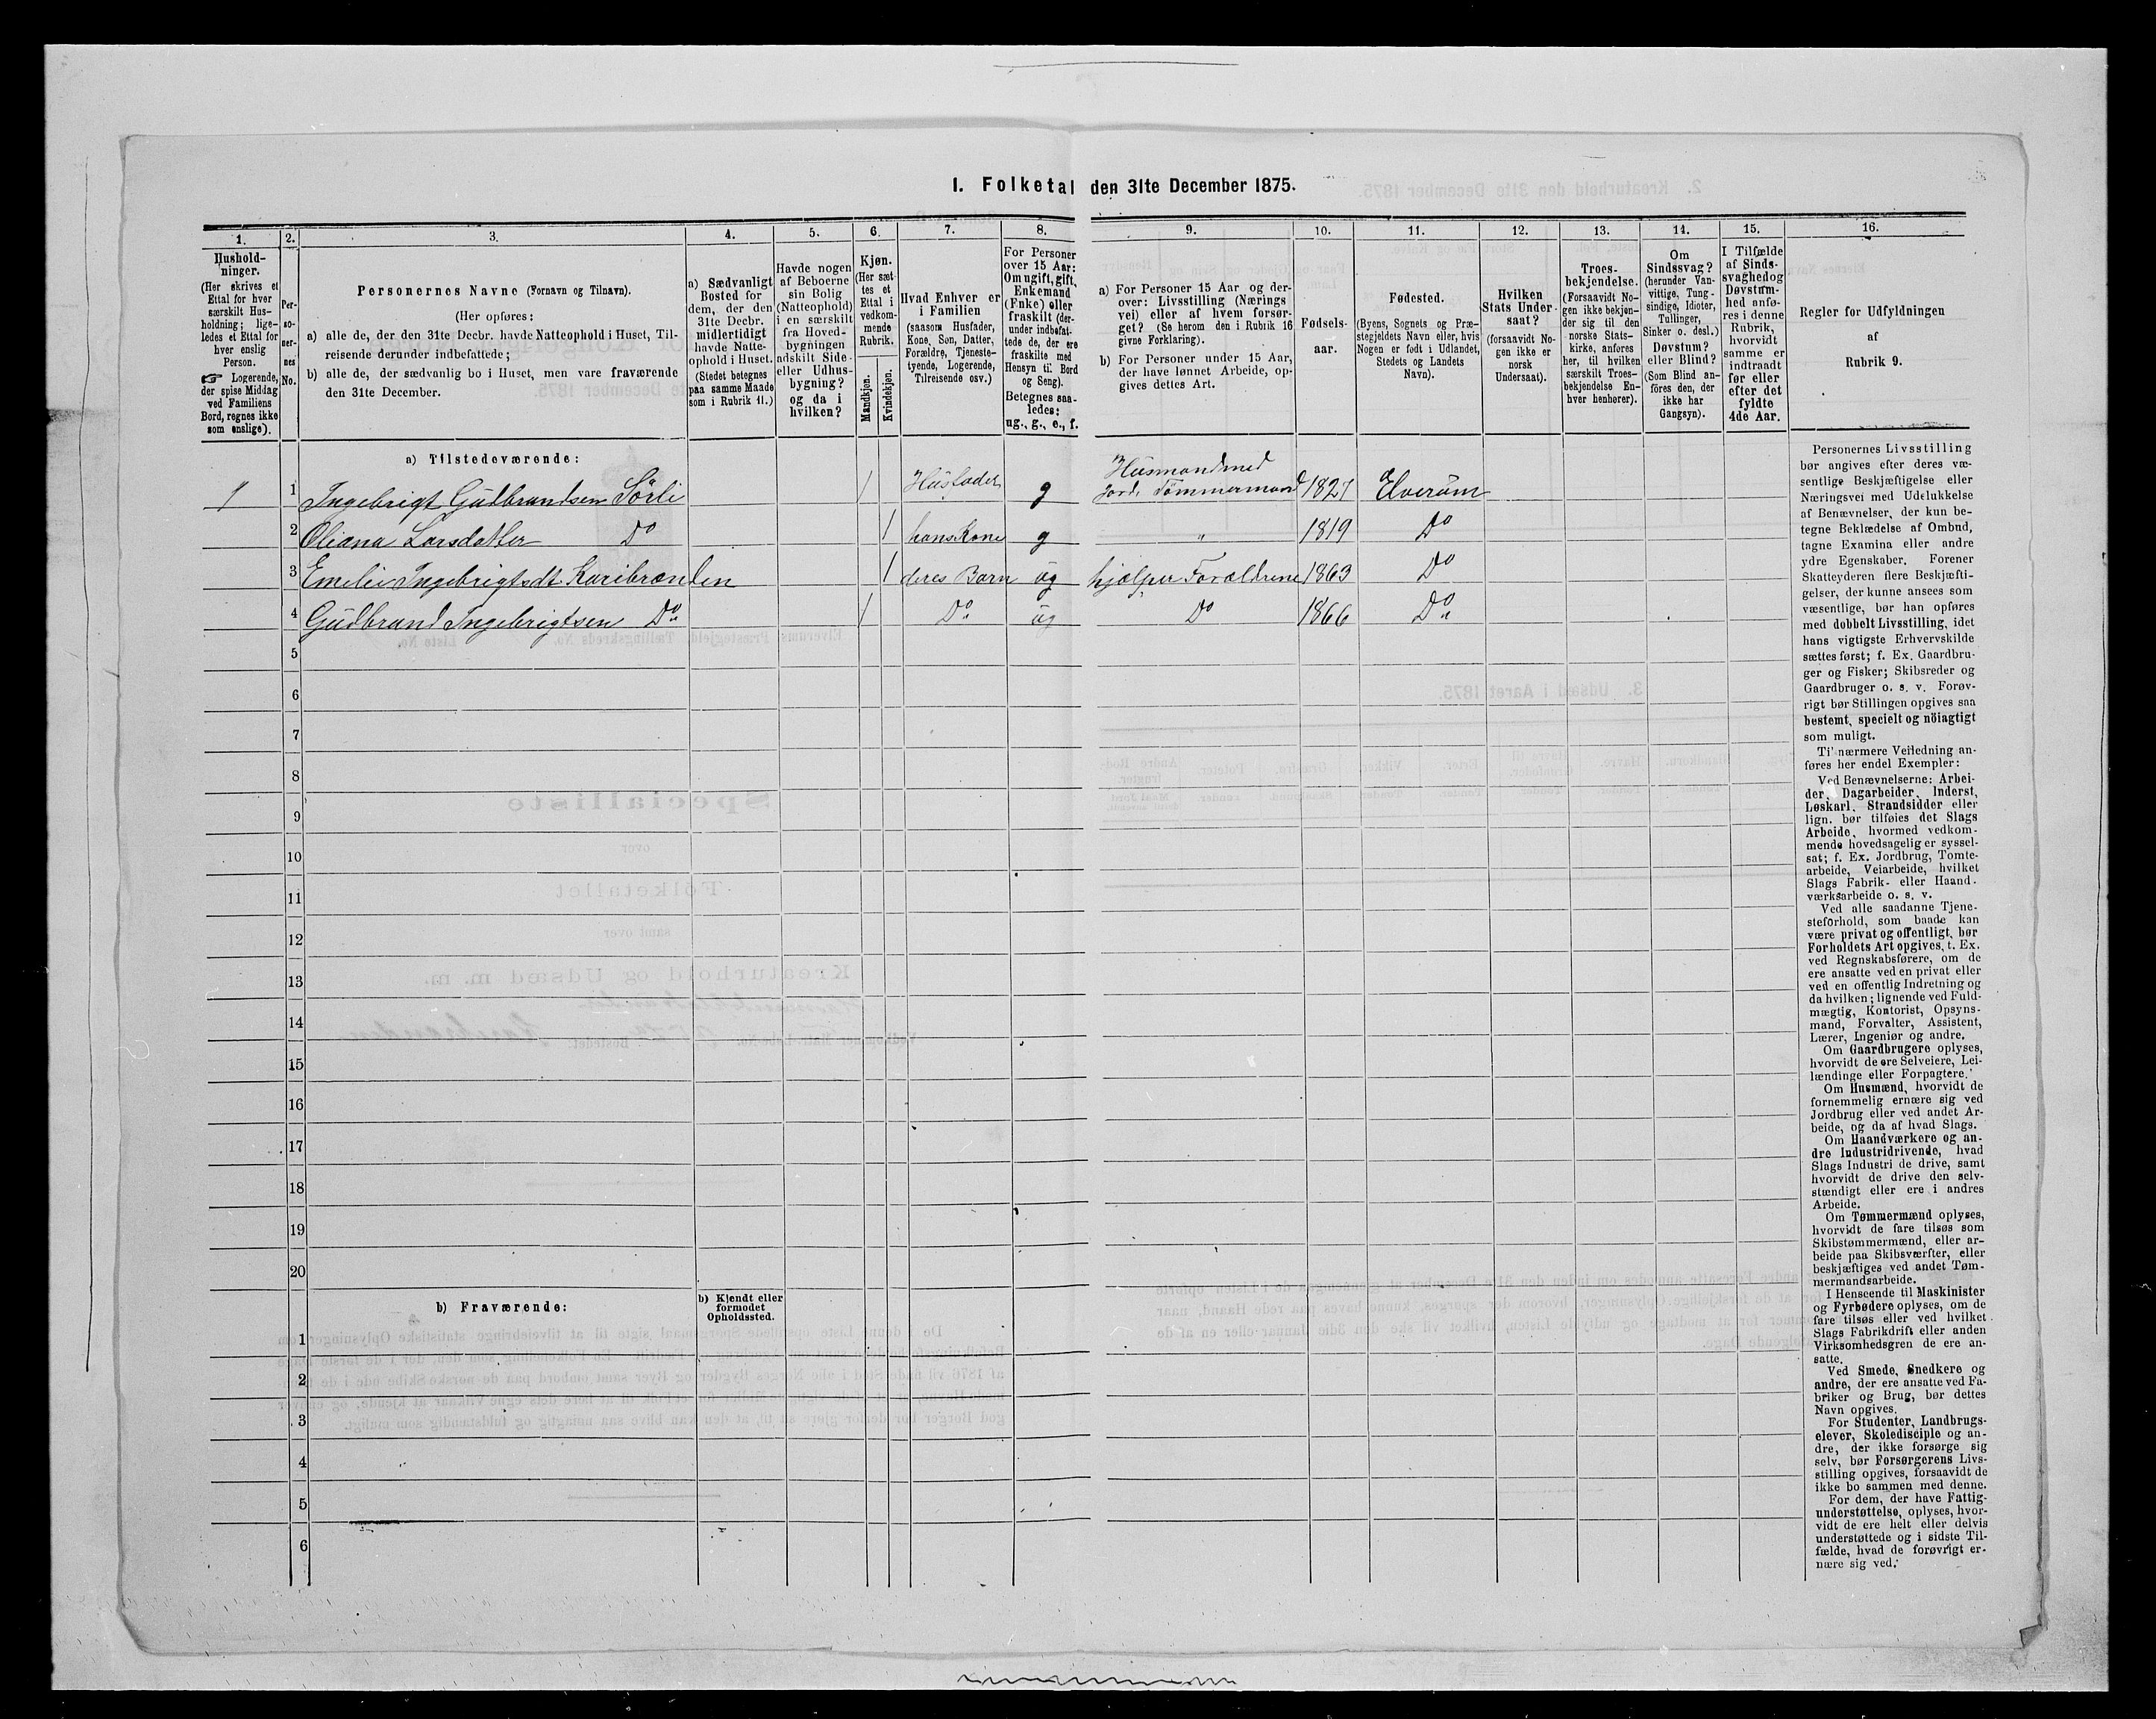 1. Folketal den 31te December 1875.
1.
Hushold-
ninger.
(Her skrives et
Ettal for hver
særskilt Hus-
holdning; lige-
ledes et Ettal for
hver enslig
Person.
☞ Logerende,
der spise Middag
ved Familiens
Bord, regnes ikke
som enslige).
2.
Per-
so-
ner-
nes
No.
3.
Personernes Navne (Fornavn og Tilnavn).
(Her opføres:
a) alle de, der den 31te Decbr. havde Natteophold i Huset, Til-
reisende derunder indbefattede;
b) alle de, der sædvanlig bo i Huset, men vare fraværende
den 31te December.
4.
a) Sædvanligt
Bosted for
dem, der den
31te Decbr.
midlertidigt
havde Natte-
ophold i Huset.
(Stedet betegnes
paa samme Maade
som i Rubrik 11.)
5.
Havde nogen
af Beboerne
sin Bolig
(Natteophold)
i en særskilt
fra Hoved-
bygningen
adskilt Side-
eller Udhus-
bygning?
og da i
hvilken?
6.
Kjøn.
(Her sæt-
tes et
Ettal i
vedkom-
mende
Rubrik.
Mandkjøn.
Kvindekjøn.
7.
Hvad Enhver er
i Familien
(saasom Husfader,
Kone, Søn, Datter,
Forældre, Tjeneste-
tyende, Logerende,
Tilreisende osv.)
8.
For Personer
over 15 Aar:
Om ugift, gift,
Enkemand
(Enke) eller
fraskilt (der-
under indbefat-
tede de, der ere
fraskilte med
Hensyn til Bord
og Seng).
Betegnes saa-
ledes:
ug., g., e., f.
9.
a) For Personer 15 Aar og der-
over: Livsstilling (Nærings
vei) eller af hvem forsør-
get? (Se herom den i Rubrik 16
givne Forklaring).
b) For Personer under 15 Aar,
der have lønnet Arbeide, op-
gives dettes Art.
10.
Fødsels-
aar.
11.
Fødested.
(Byens, Sognets og Præ-
stegjeldets Navn eller, hvis
Nogen er født i Udlandet,
Stedets og Landets
Navn).
12.
Hvilken
Stats Under-
saat?
(forsaavidt No-
gen ikke er
norsk
Undersaat).
13.
Troes-
bekjendelse.
(Forsaavidt No-
gen ikke bekjen-
der sig til den
norske Stats-
kirke, anføres
her, til hvilken
særskilt Troes-
bekjendelse En-
hver henhører).
14.
Om
Sindssvag?
(herunder Van-
vittige, Tung-
sindige, Idioter,
Tullinger,
Sinker o. desl.)
Døvstum?
eller Blind?
(Som Blind an-
føres den, der
ikke har
Gangsyn).
15.
I Tilfælde
af Sinds-
svaghed og
Døvstum-
hed anfø-
res i denne
Rubrik,
hvorvidt
samme er
indtraadt
før eller
efter det
fyldte
4de Aar.
16.
Regler for Udfyldningen
af
Rubrik 9.
a) Tilstedeværende:
1 1 Ingebrigt Gudbrandsen Sörli 1 Husfader g Husmand med Jord. Tömmermand 1827 Elverum
2 Oliana Larsdatter Do 1 hans Kone g " 1819 Do
3 Emelie Ingebrigtsdt Karibrænden 1 deres Barn ug hjælper Forældrene 1863 Do
4 Gudbrand Ingebrigtsen Do 1 Do ug Do 1866 Do
5
6
7
8
9
10
11
12
13
14
15
16
17
18
19
20
b) Fraværende:
b) Kjendt eller
formodet
Opholdssted.
1
2
3
4
5
6
Personernes Livsstilling
bør angives efter deres væ-
sentlige Beskjæftigelse eller
Næringsvei med Udelukkelse
af Benævnelser, der kun be-
tegne Beklædelse af Ombud,
tagne Examina eller andre
ydre Egenskaber. Forener
Skatteyderen flere Beskjæfti-
gelser, der kunne ansees som
væsentlige, bør han opføres
med dobbelt Livsstilling, idet
hans vigtigste Erhvervskilde
sættes først; f. Ex. Gaardbru-
ger og Fisker; Skibsreder og
Gaardbruger o. s. v. Forøv-
rigt bør Stillingen opgives saa
bestemt, specielt og nöiagtigt
som muligt.
Til nærmere Veiledning an-
føres her endel Exempler:
Ved Benævnelserne: Arbei-
der, Dagarbeider, Inderst,
Løskarl, Strandsidder eller
lign. bør tilføies det Slags
Arbeide, hvormed vedkom-
mende hovedsagelig er syssel-
sat; f. Ex. Jordbrug, Tomte-
arbeide, Veiarbeide, hvilket
Slags Fabrik- eller Haand-
værksarbeide o. s. v.
Ved alle saadanne Tjene-
steforhold, som baade kan
være privat og offentligt, bør
Forholdets Art opgives, t. Ex.
ved Regnskabsførere, om de
ere ansatte ved en privat eller
ved en offentlig Indretning og
da hvilken; lignende ved Fuld-
mægtig, Kontorist, Opsyns-
mand, Forvalter, Assistent,
Lærer, Ingeniør og andre.
Om Gaardbrugere oplyses,
hvorvidt de ere Selveiere, Lei-
lændinge eller Forpagtere.
Om Husmænd, hvorvidt de
fornemmelig ernære sig ved
Jordbrug eller ved andet Ar-
beide, og da af hvad Slags.
Om Haandværkere og an-
dre Industridrivende, hvad
Slags Industri de drive, samt
hvorvidt de drive den selv-
stændigt eller ere i andres
Arbeide.
Om Tømmermænd oplyses,
hvorvidt de fare tilsøs som
Skibstømmermænd, eller ar-
beide paa Skibsværfter, eller
beskjæftiges ved andet Tøm-
mermandsarbeide.
I Henseende til Maskinister
og Fyrbødere oplyses, om de
fare tilsøs eller ved hvilket
Slags Fabrikdrift eller anden
Virksomhedsgren de ere an-
satte.
Ved Smede, Snedkere og
andre, der ere ansatte ved Fa-
briker og Brug, bør dettes
Navn opgives.
For Studenter, Landbrugs-
elever, Skoledisciple og an-
dre, der ikke forsørge sig
selv, bør Forsørgerens Livs-
stilling opgives, forsaavidt de
ikke bo sammen med denne.
For dem, der have Fattig-
understøttelse, oplyses, hvor-
vidt de ere helt eller delvis
understøttede og i sidste Til-
fælde, hvad de forøvrigt er-
nære sig ved.